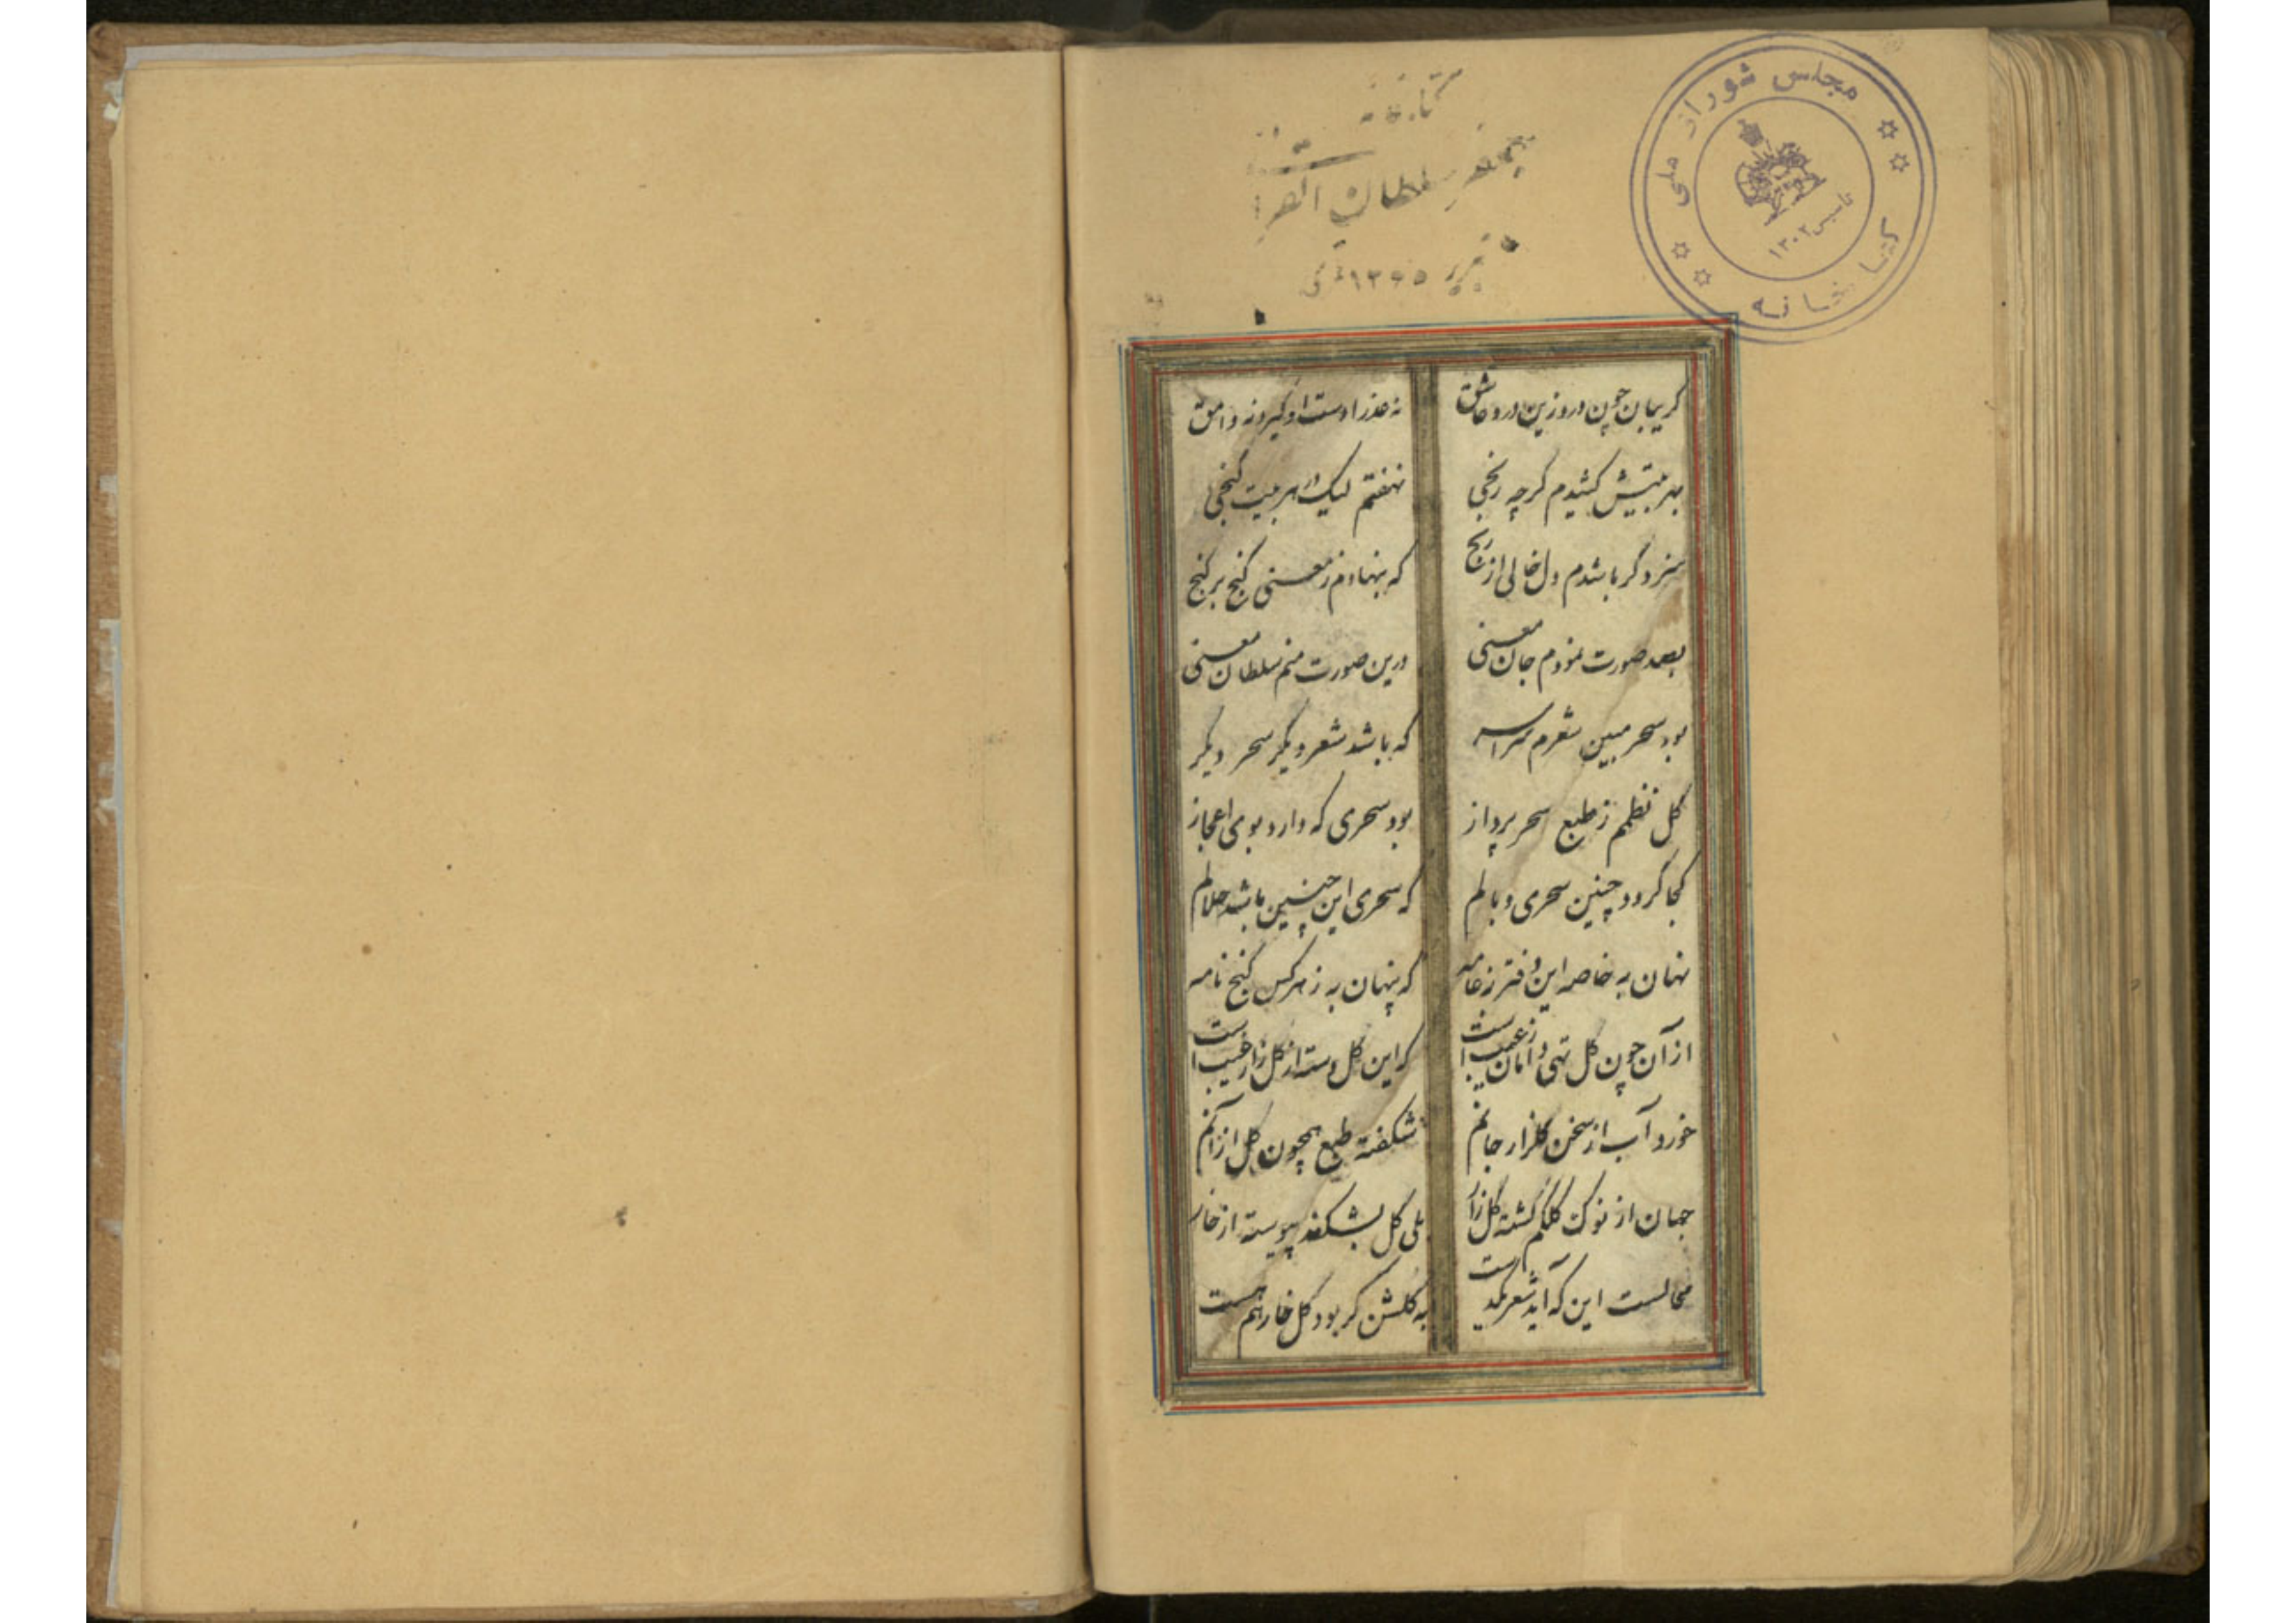 کتابخانه مجلس شورای ملی
تأسیس ۱۳۰۲
سلطان القرا
تبریز
گریبان چون درد زین درد عاشق
نه عذرا دست او گیرد نه وامق
بهر بیتیش کشیدم گرچه رنجی
نهفتم لیک در هر بیت گنجی
سزد گر باشدم دل خالی از رنج
که بنهادم ز معنی گنج بر گنج
بصد صورت نمودم جان معنی
درین صورت منم سلطان معنی
بود سحر مبین شعرم سراسر
که باشد شعر دیگر سحر دیگر
گل نظمم ز طبع سحر پرداز
بود سحری که دارد بوی اعجاز
کجا گردد چنین سحری وبالم
که سحری این چنین باشد حلالم
نهان به خاصه این دفتر ز عامه
که پنهان به ز هر کس گنج نامه
از آن چون گل تهی دامان ز عیب است
که این گل دسته از گلزار غیب است
خورد آب از سخن گلزار جانم
شکفته طبع همچون گل از آنم
جهان از نوک کلکم گشته گلزار
بلی گل بشکفد پیوسته از خار
محالست این که آید شعر یکدست
به گلشن گر بود گل خار هم هست